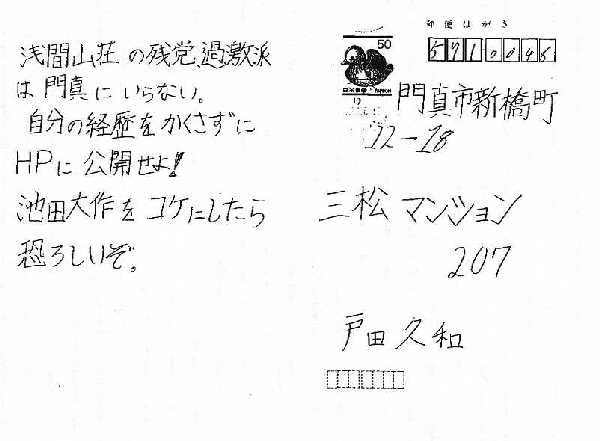 浅間山荘の残党、過激派
は門真にいらない。
自分の経歴をかくさずに
HPに公開せよ!
池田大作をコケにしたら
恐ろしいぞ。
郵便はがき
50
NIPPON
門真市新橋町
12-18
三松マンション
207
戸田久和